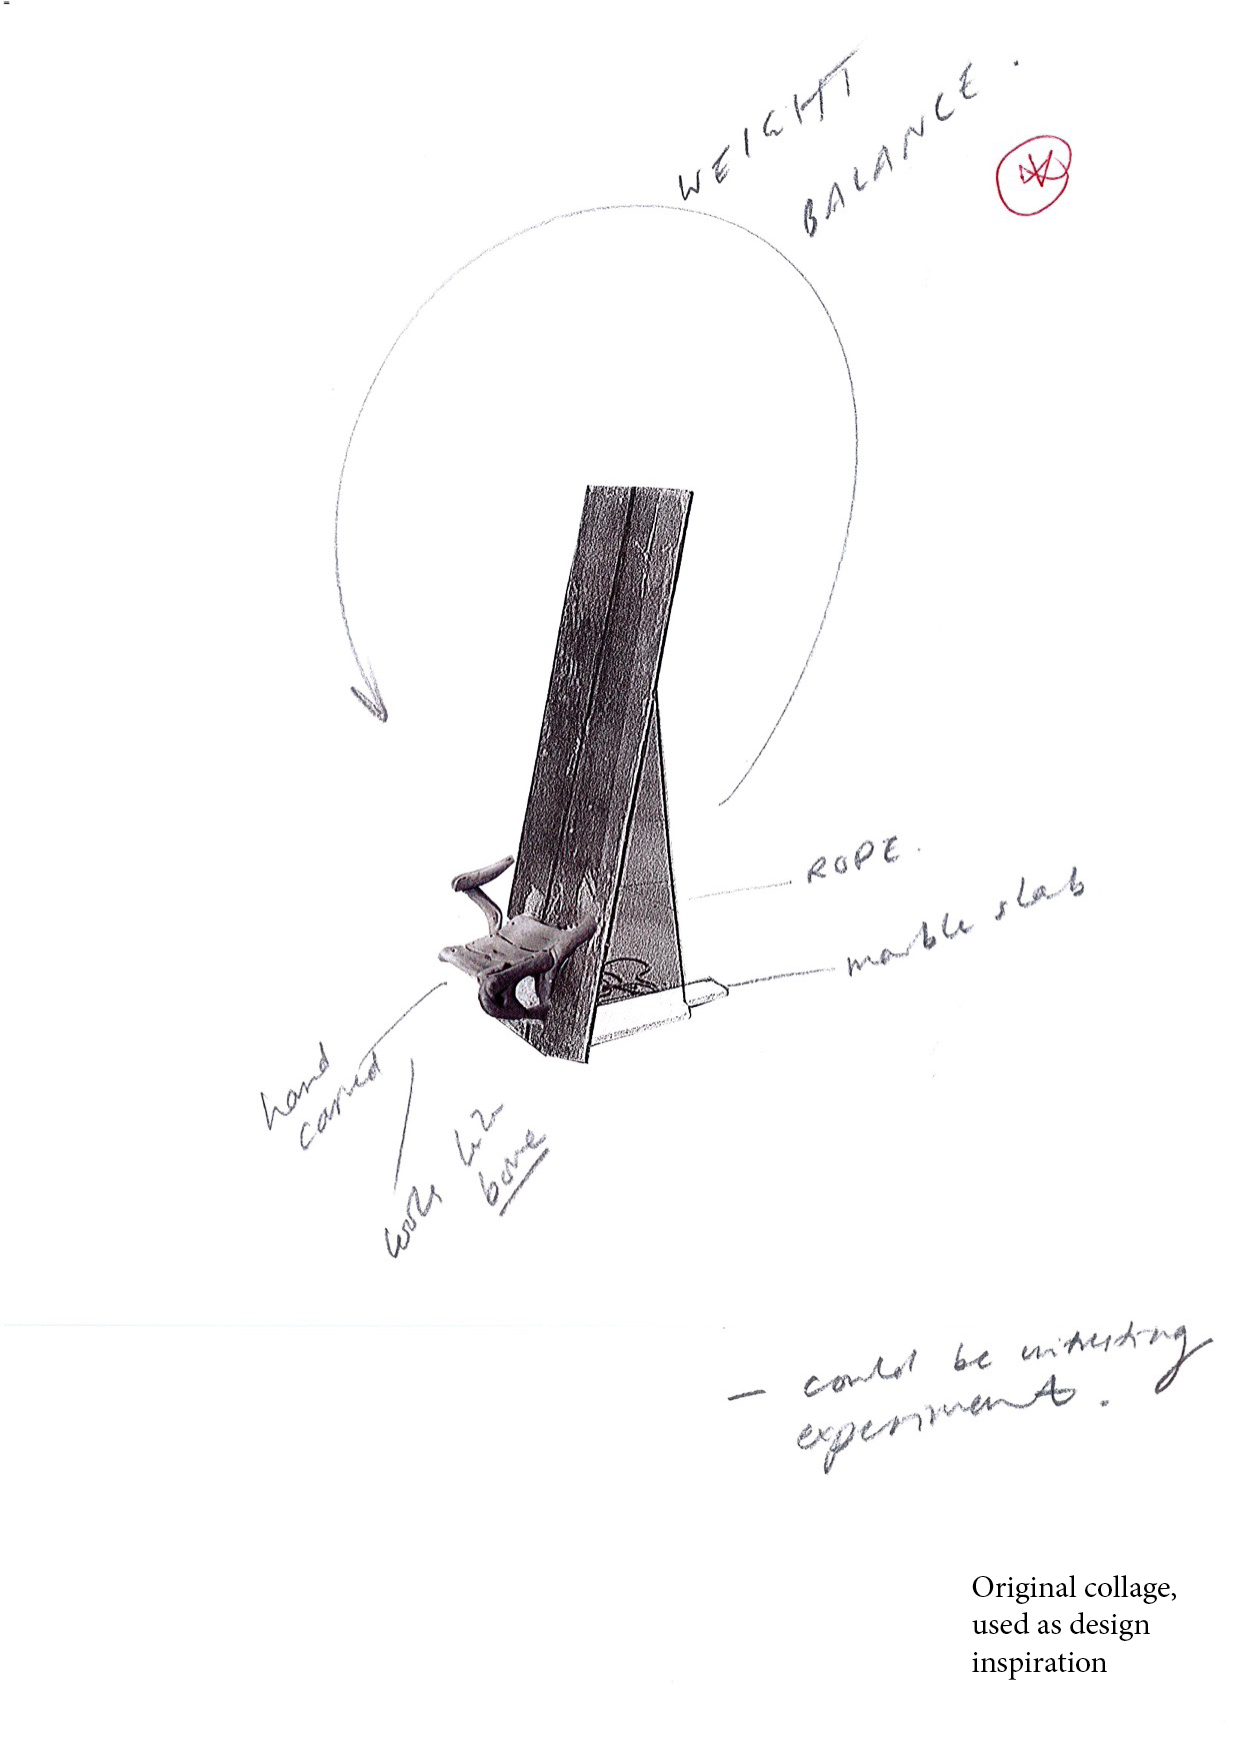 WEIGHT
BALANCE.
ROPE.
marble slab
hand
carved
looks like
bone
– could be interesting
experiment.
Original collage,
used as design
inspiration